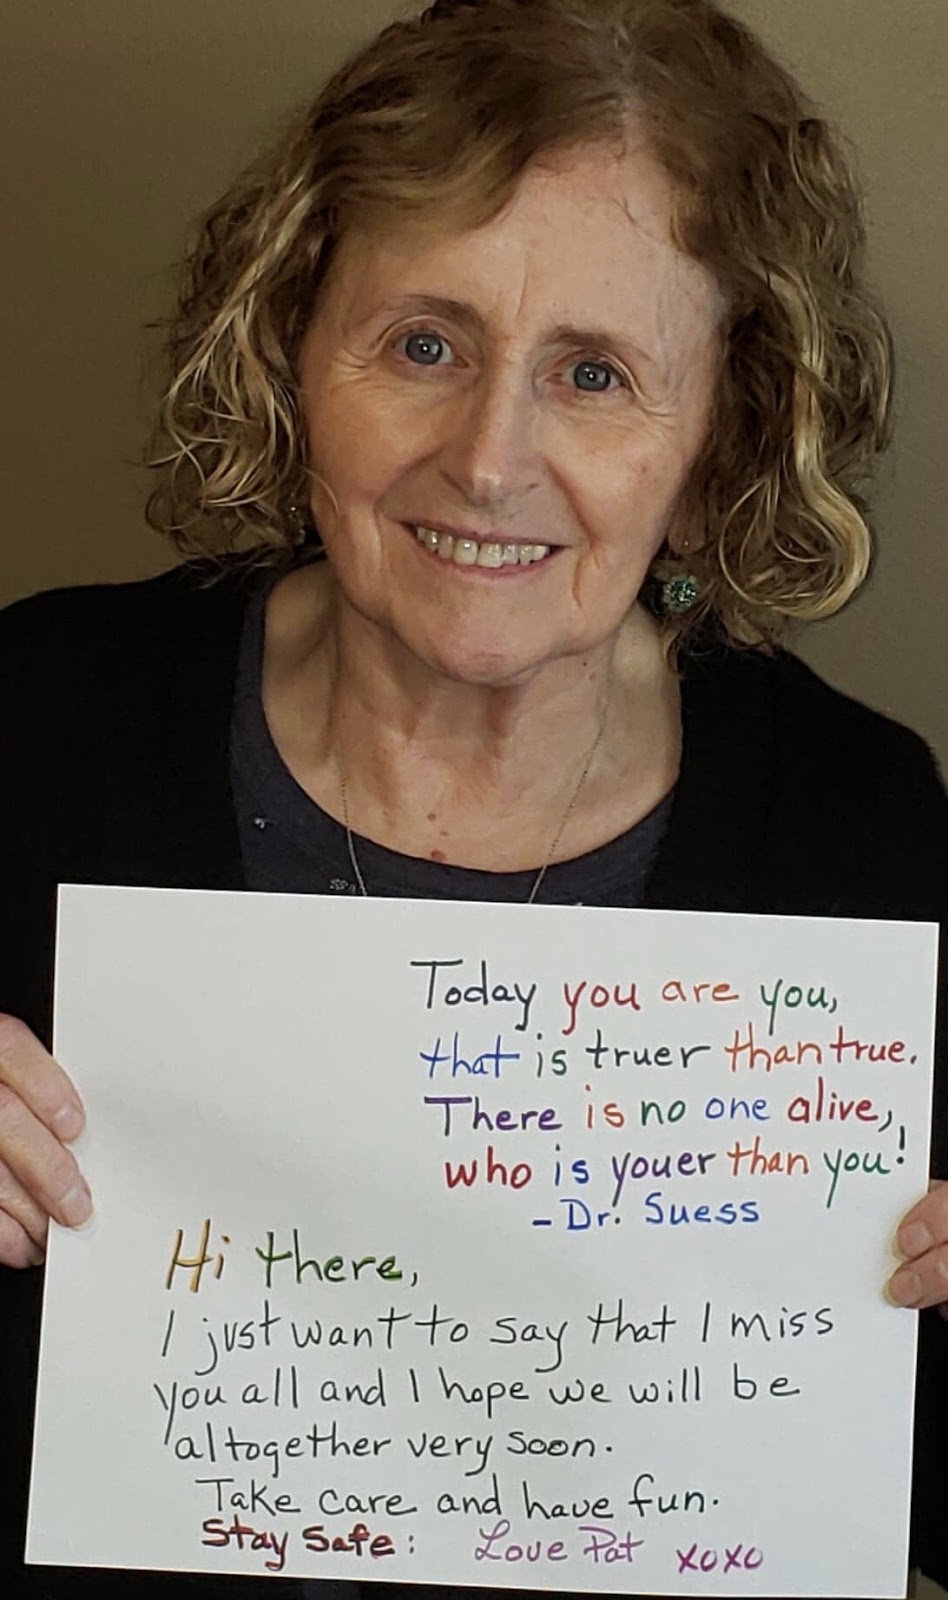 Today you are you,
that is truer than true.
There is no one alive,
who is youer than you!
- Dr. Suess
Hi there,
I just want to say that I miss
you all and I hope we will be
altogether very soon.
Take care and have fun.
Stay Safe: Love Pat xoxo